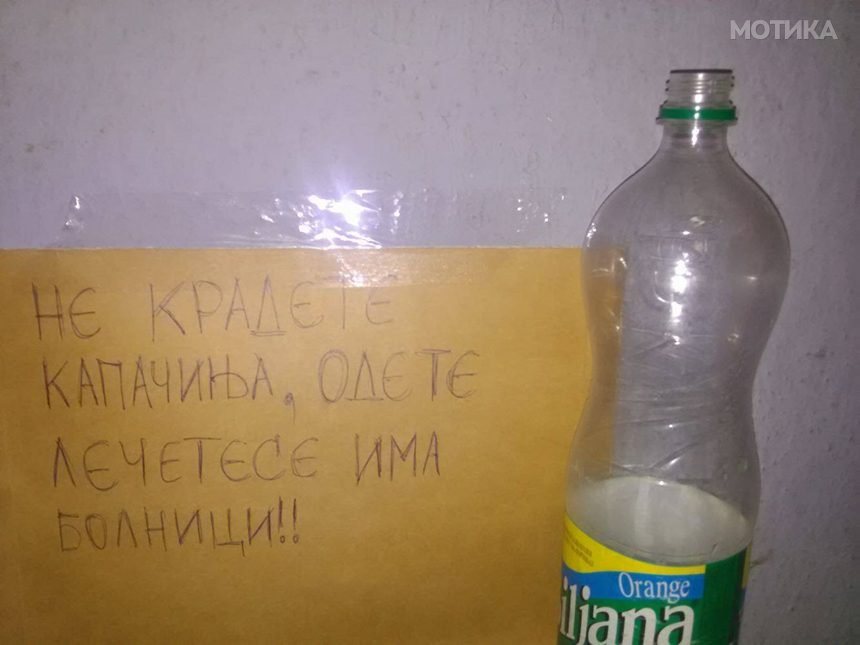 МОТИКА
НЕ КРАДЕТЕ
КАПАЧИЊА, ОДЕТЕ
ЛЕЧЕТЕСЕ ИМА
БОЛНИЦИ!!
Orange
iljana